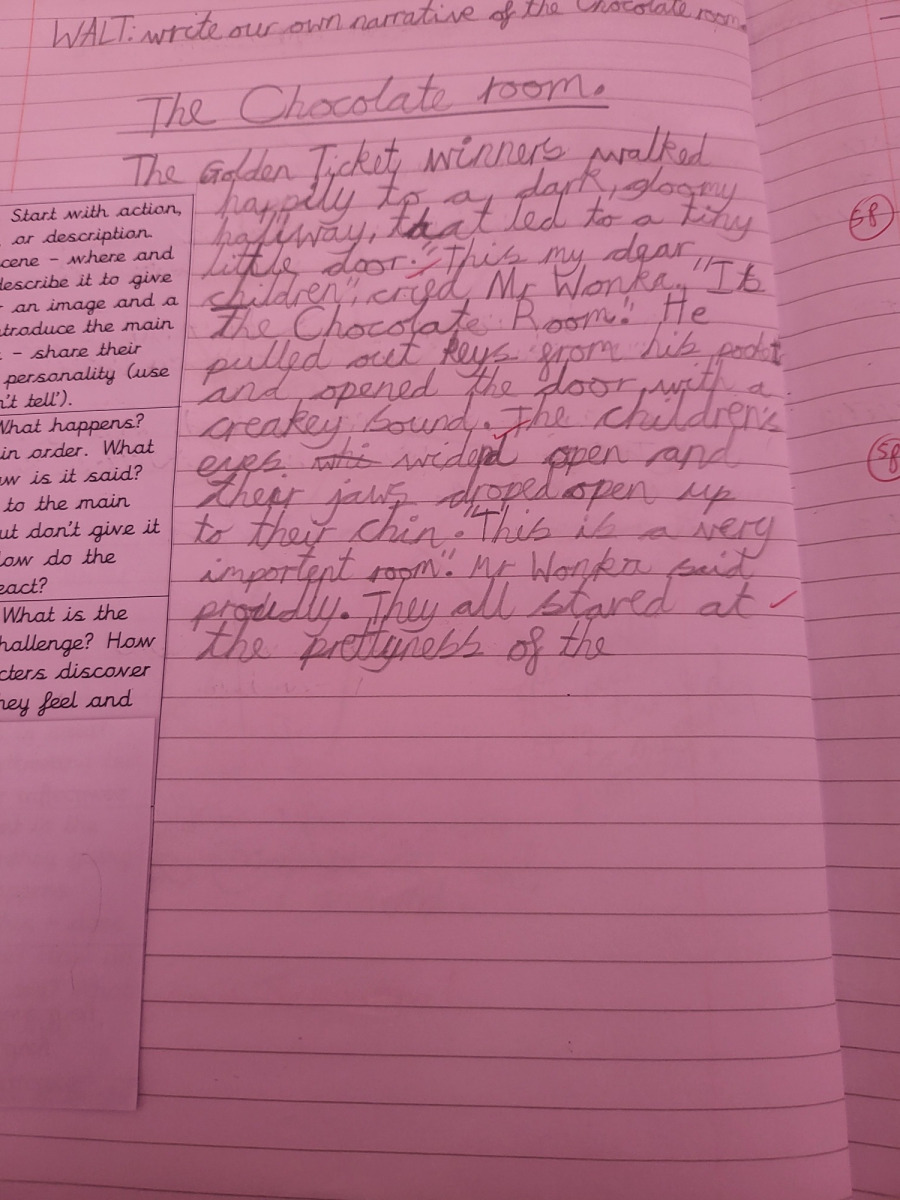 WALT: write our own narrative of the Chocolate room.
The Chocolate room.
The Golden Ticket winners walked
happily to a dark, gloomy
hallway, that led to a tiny
little door. "This my dear
children", cried Mr Wonka. "Is
the Chocolate Room". He
pulled out keys from his pocket
and opened the door with a
creakey sound. The children's
eyes widend open and
their jaws droped open up
to their chin. "This is a very
importent room". Mr Wonka said
proudly. They all stared at
the prettyness of the
Start with action,
or description.
cene - where and
describe it to give
an image and a
troduce the main
- share their
personality (use
n't tell').
What happens?
in order. What
ow is it said?
to the main
ut don't give it
How do the
eact?
What is the
hallenge? How
cters discover
hey feel and
58
58